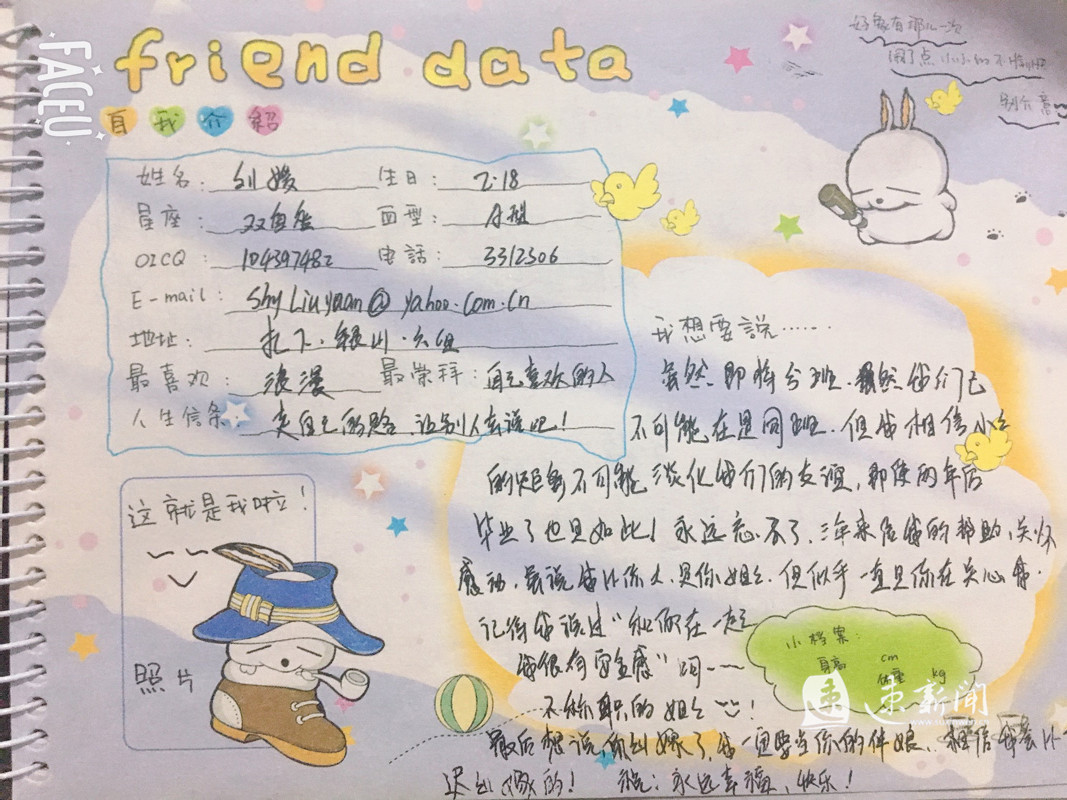 FACEU
friend data
自我介紹
好象有那么一次
别介意
姓名: 刘媛 生日: 2.18
星座: 双鱼座 血型: A型
OICQ: 104397482 电話: 3312306
E-mail: ShyLiuyuan@yahoo.com.cn
地址: 扎下.银川.六组
最喜欢: 浪漫 最崇拜: 自己喜欢的人
人生信条: 走自己的路,让别人去说吧!
我想要説……
虽然,即将分班.虽然我们已
不可能在是同班.但我相信小小
的距离不可能淡化我们的友谊,即使两年后
毕业了也是如此!永远忘不了,三年来你给我的帮助、关怀
感动,虽说我比你大,是你姐姐.但似乎一直是你在关心我.
记得我说过"和你在一起
我很有安全感"
不称职的姐姐!
最后想说,你出嫁了,我一定要当你的伴娘.相信我会比
迟出嫁的! 祝:永远幸福、快乐!
这就是我啦!
照片
小档案:
身高 cm
体重 kg
速新闻